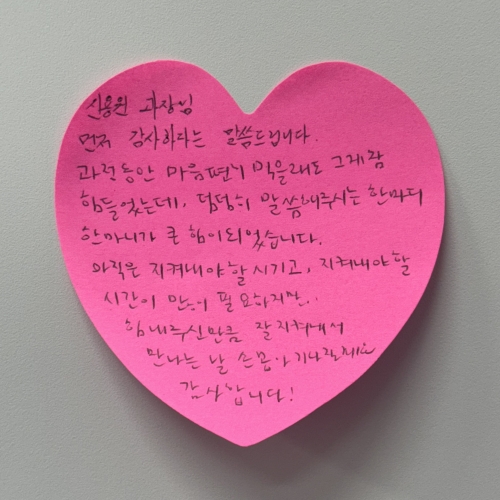 신용원 과장님
먼저 감사하다는 말씀드립니다.
동안 마음편히 먹을래도 그게 참
힘들었는데, 덤덤히 말씀해주시는 한마디
한마디가 큰 힘이되었습니다.
아직은 지켜내야할시기고, 지켜내야할
시간이 많이 필요하지만..
힘내주신만큼 잘지켜내서
만나는 날 손꼽아
감사합니다!